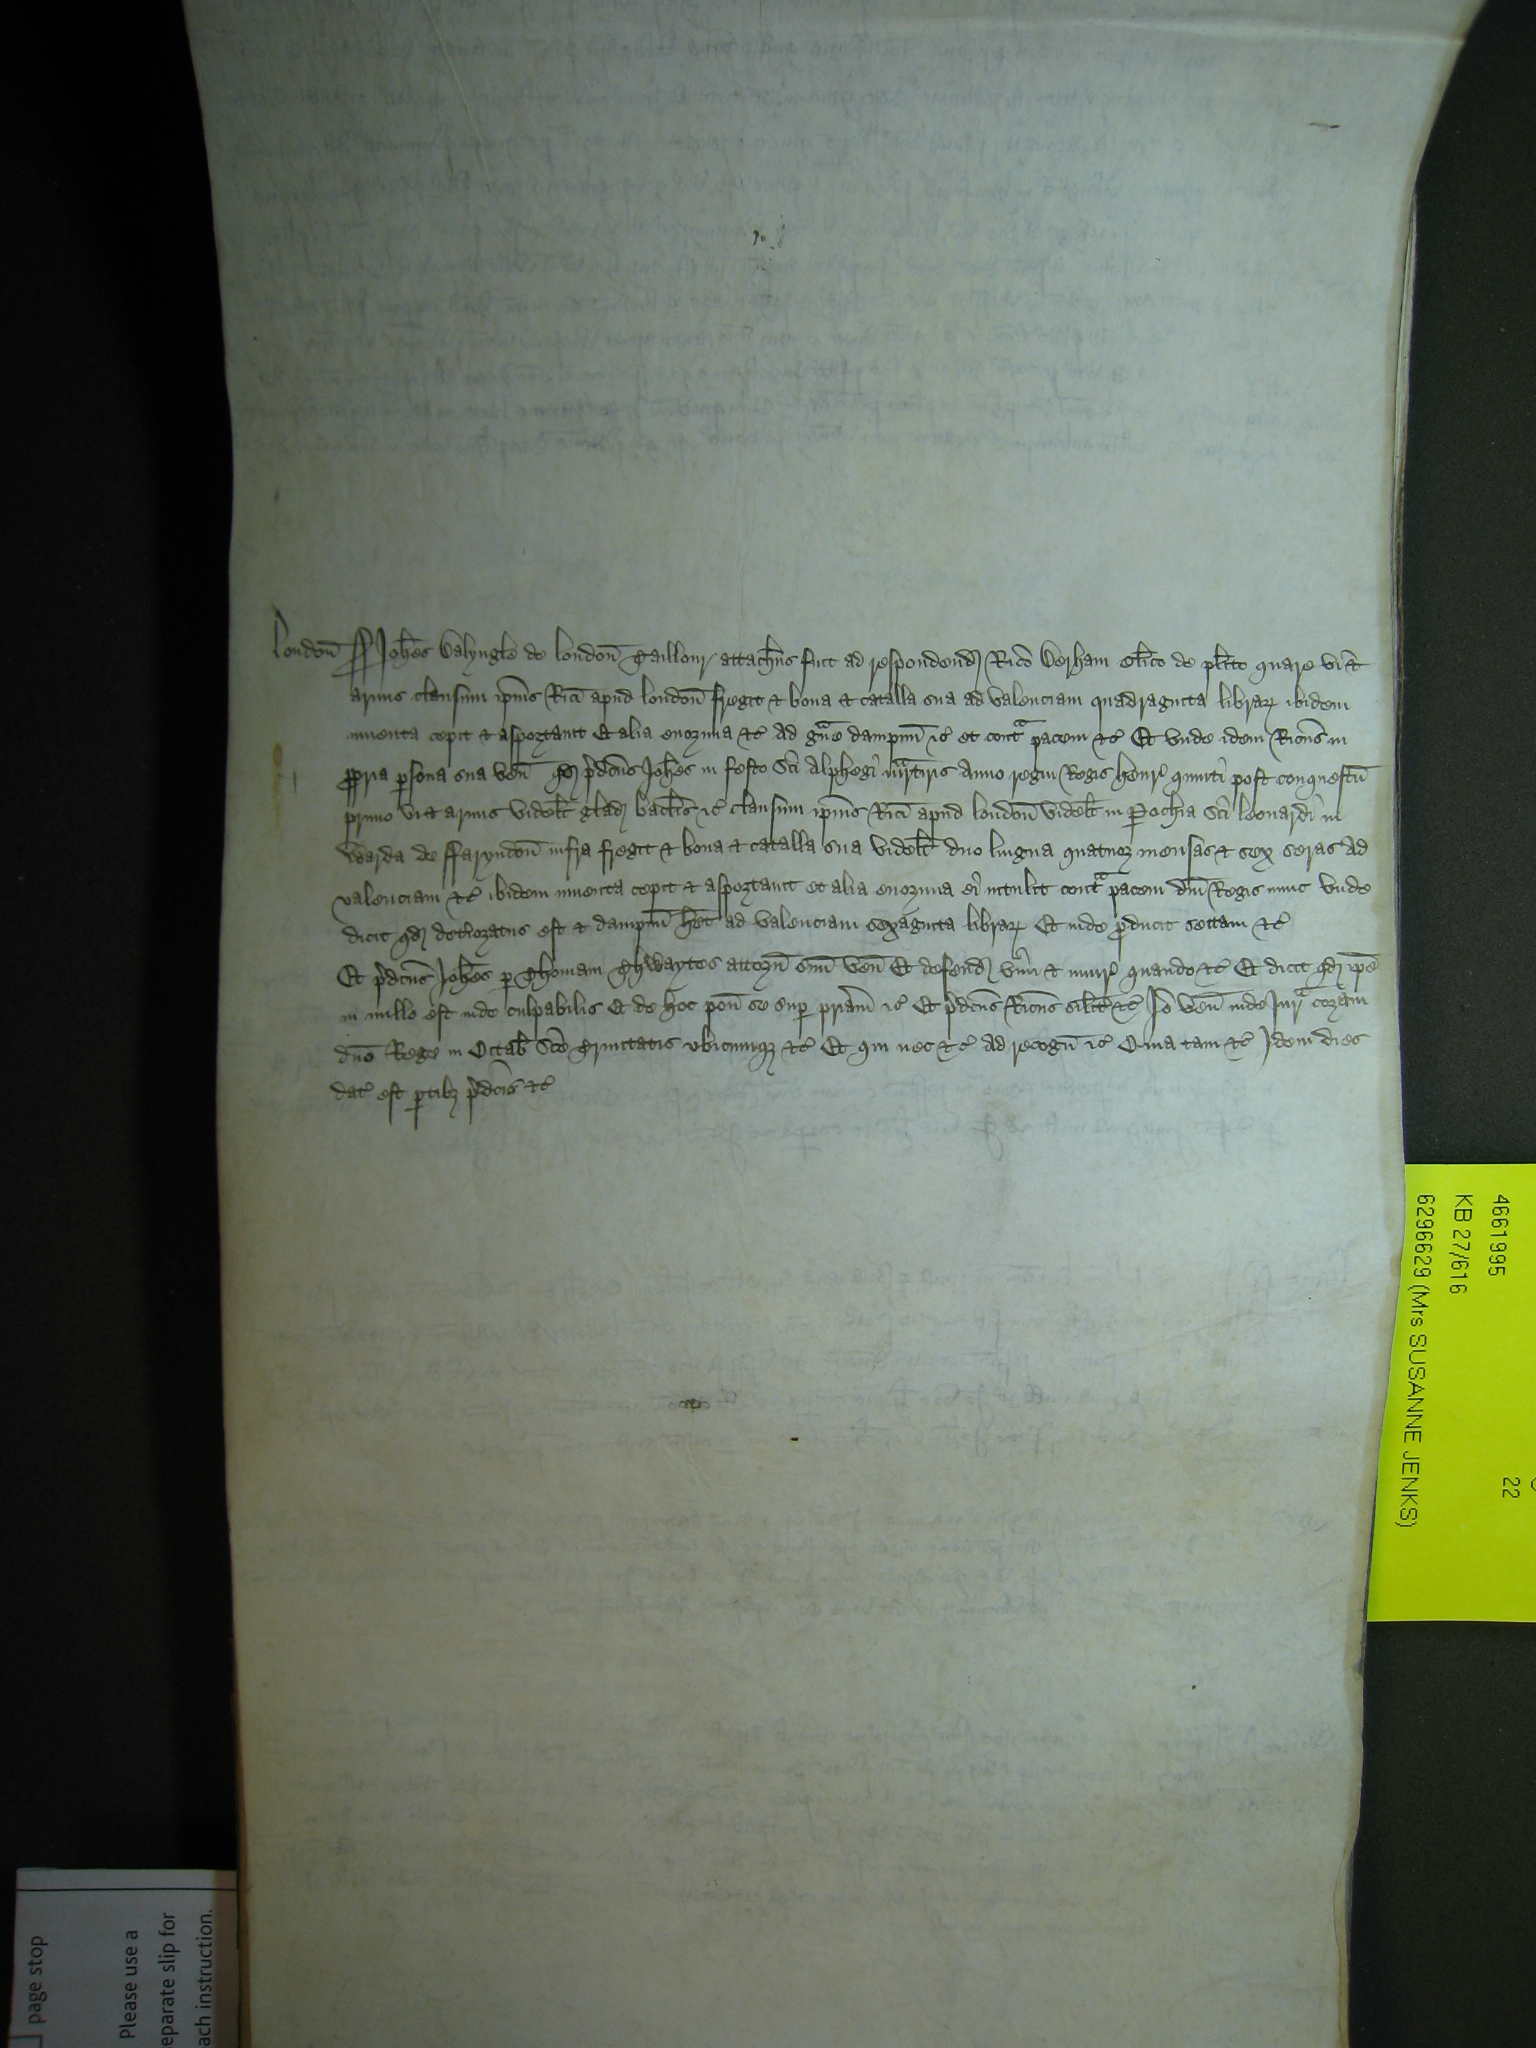 London̄ ff Joh̄es Valyngle de london̄ Taillour attach̄us fuit ad respondend Ric̄o Derham cl̄ico de pl̄ito quare vi &
armis clausum ip̄ius Ric̄i apud london̄ fregit & bona & catalla sua ad valenciam quadraginta librar ibidem
inuenta cepit & asportauit Et alia enormia &c̄ Ad g̃ue dampnū &c̄ et contᵃ pacem &c̄ Et vnde idem Ric̄us in
ꝓpria ꝑsona sua ven̄ qd p̄dc̄us Joh̄es in festo Sc̄i Alphegi mᵃrtiris Anno regni Regis Henr̄ quinti post conquestū
primo vi & armis videlt̄ glad bacl̄is &c̄ clausum ip̄ius Ric̄i apud london̄ videlt̄ in Parochia Sc̄i leonardi in
Warda de ffaryndon̄ infra fregit & bona & catalla sua videlt̄ duo ligna quatuor mensas & sex seras Ad
valenciam &c̄ ibidem inuenta cepit & asportauit et alia enormia ei intulit contᵃ pacem dn̄i Regis nunc vnde
dicit qd det̄ioratus est & dampnū h̄et ad valenciam sexaginta librar Et inde ꝓducit sectam &c̄
Et p̄dc̄us Joh̄es ꝑ Thomam Thwaytes attorn̄ suū ven̄ Et defend vim & iniur̄ quando &c̄ Et dicit qd ip̄e
in nullo est inde culpabilis Et de hoc pon̄ se suꝑ pr̄iam &c̄ Et p̄dc̄us Ric̄us sil̄it̄ &c̄ Jo ven̄ inde Jurᵃ coram
dn̄o Rege in Octab̄ Sc̄e Trinitatis vbicumqꝫ &c̄ Et qui nec &c̄ ad recogn̄ &c̄ Quia tam &c̄ Idem dies
dat̄ est ꝑtibꝫ p̄dc̄is &c̄
4661995
KB 27/616
6296629 (Mrs SUSANNE JENKS)
22
page stop
Please use a
eparate slip for
ach instruction.